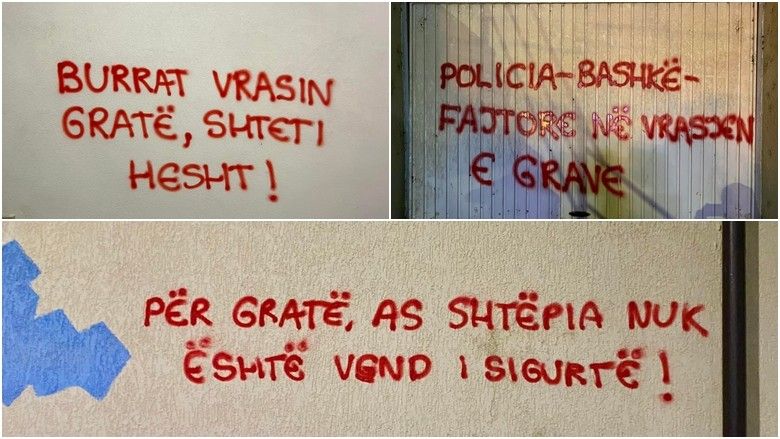 BURRAT VRASIN
GRATË, SHTETI
HESHT!
POLICIA-BASHKË-
FAJTORE NË VRASJEN
E GRAVE
PËR GRATË, AS SHTËPIA NUK
ËSHTË VEND I SIGURTË!